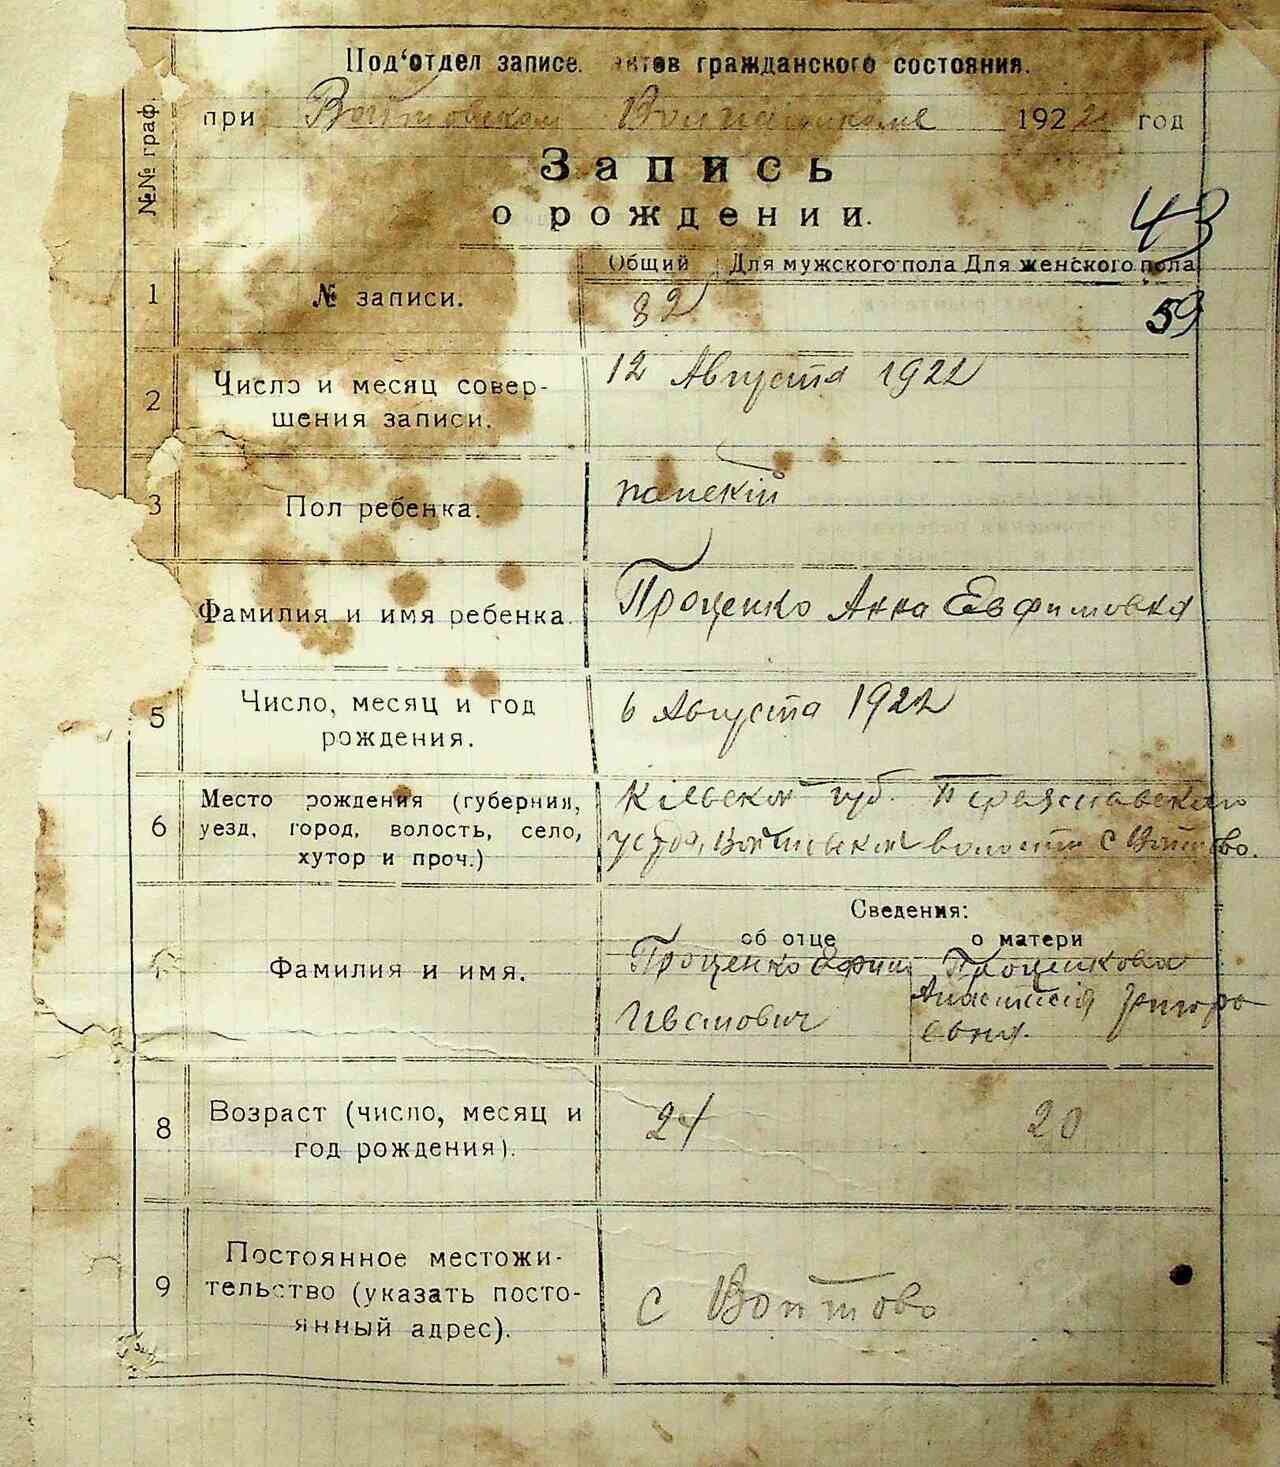 Под‘отдел записе. актов гражданского состояния.
при Войтовском Волисполкоме 1922 год
№№ граф.
Запись
о рождении.
43
Общий Для мужского пола Для женского пола
1 № записи. 82 59
2 Число и месяц совер-
шения записи.
12 Августа 1922
3 Пол ребенка.
Фамилия и имя ребенка.
Проценко Анна Евфимовна
5 Число, месяц и год
рождения.
6 Августа 1922
6 Место рождения (губерния,
уезд, город, волость, село,
хутор и проч.)
губ. Переяславского
волости с Войтово.
Сведения:
об отце о матери
Фамилия и имя.
Проценко Ефим
Иванович
Проценкова
Анастасія Григорь
евна.
8 Возраст (число, месяц и
год рождения).
24 20
9 Постоянное местожи-
тельство (указать посто-
янный адрес).
с Войтово